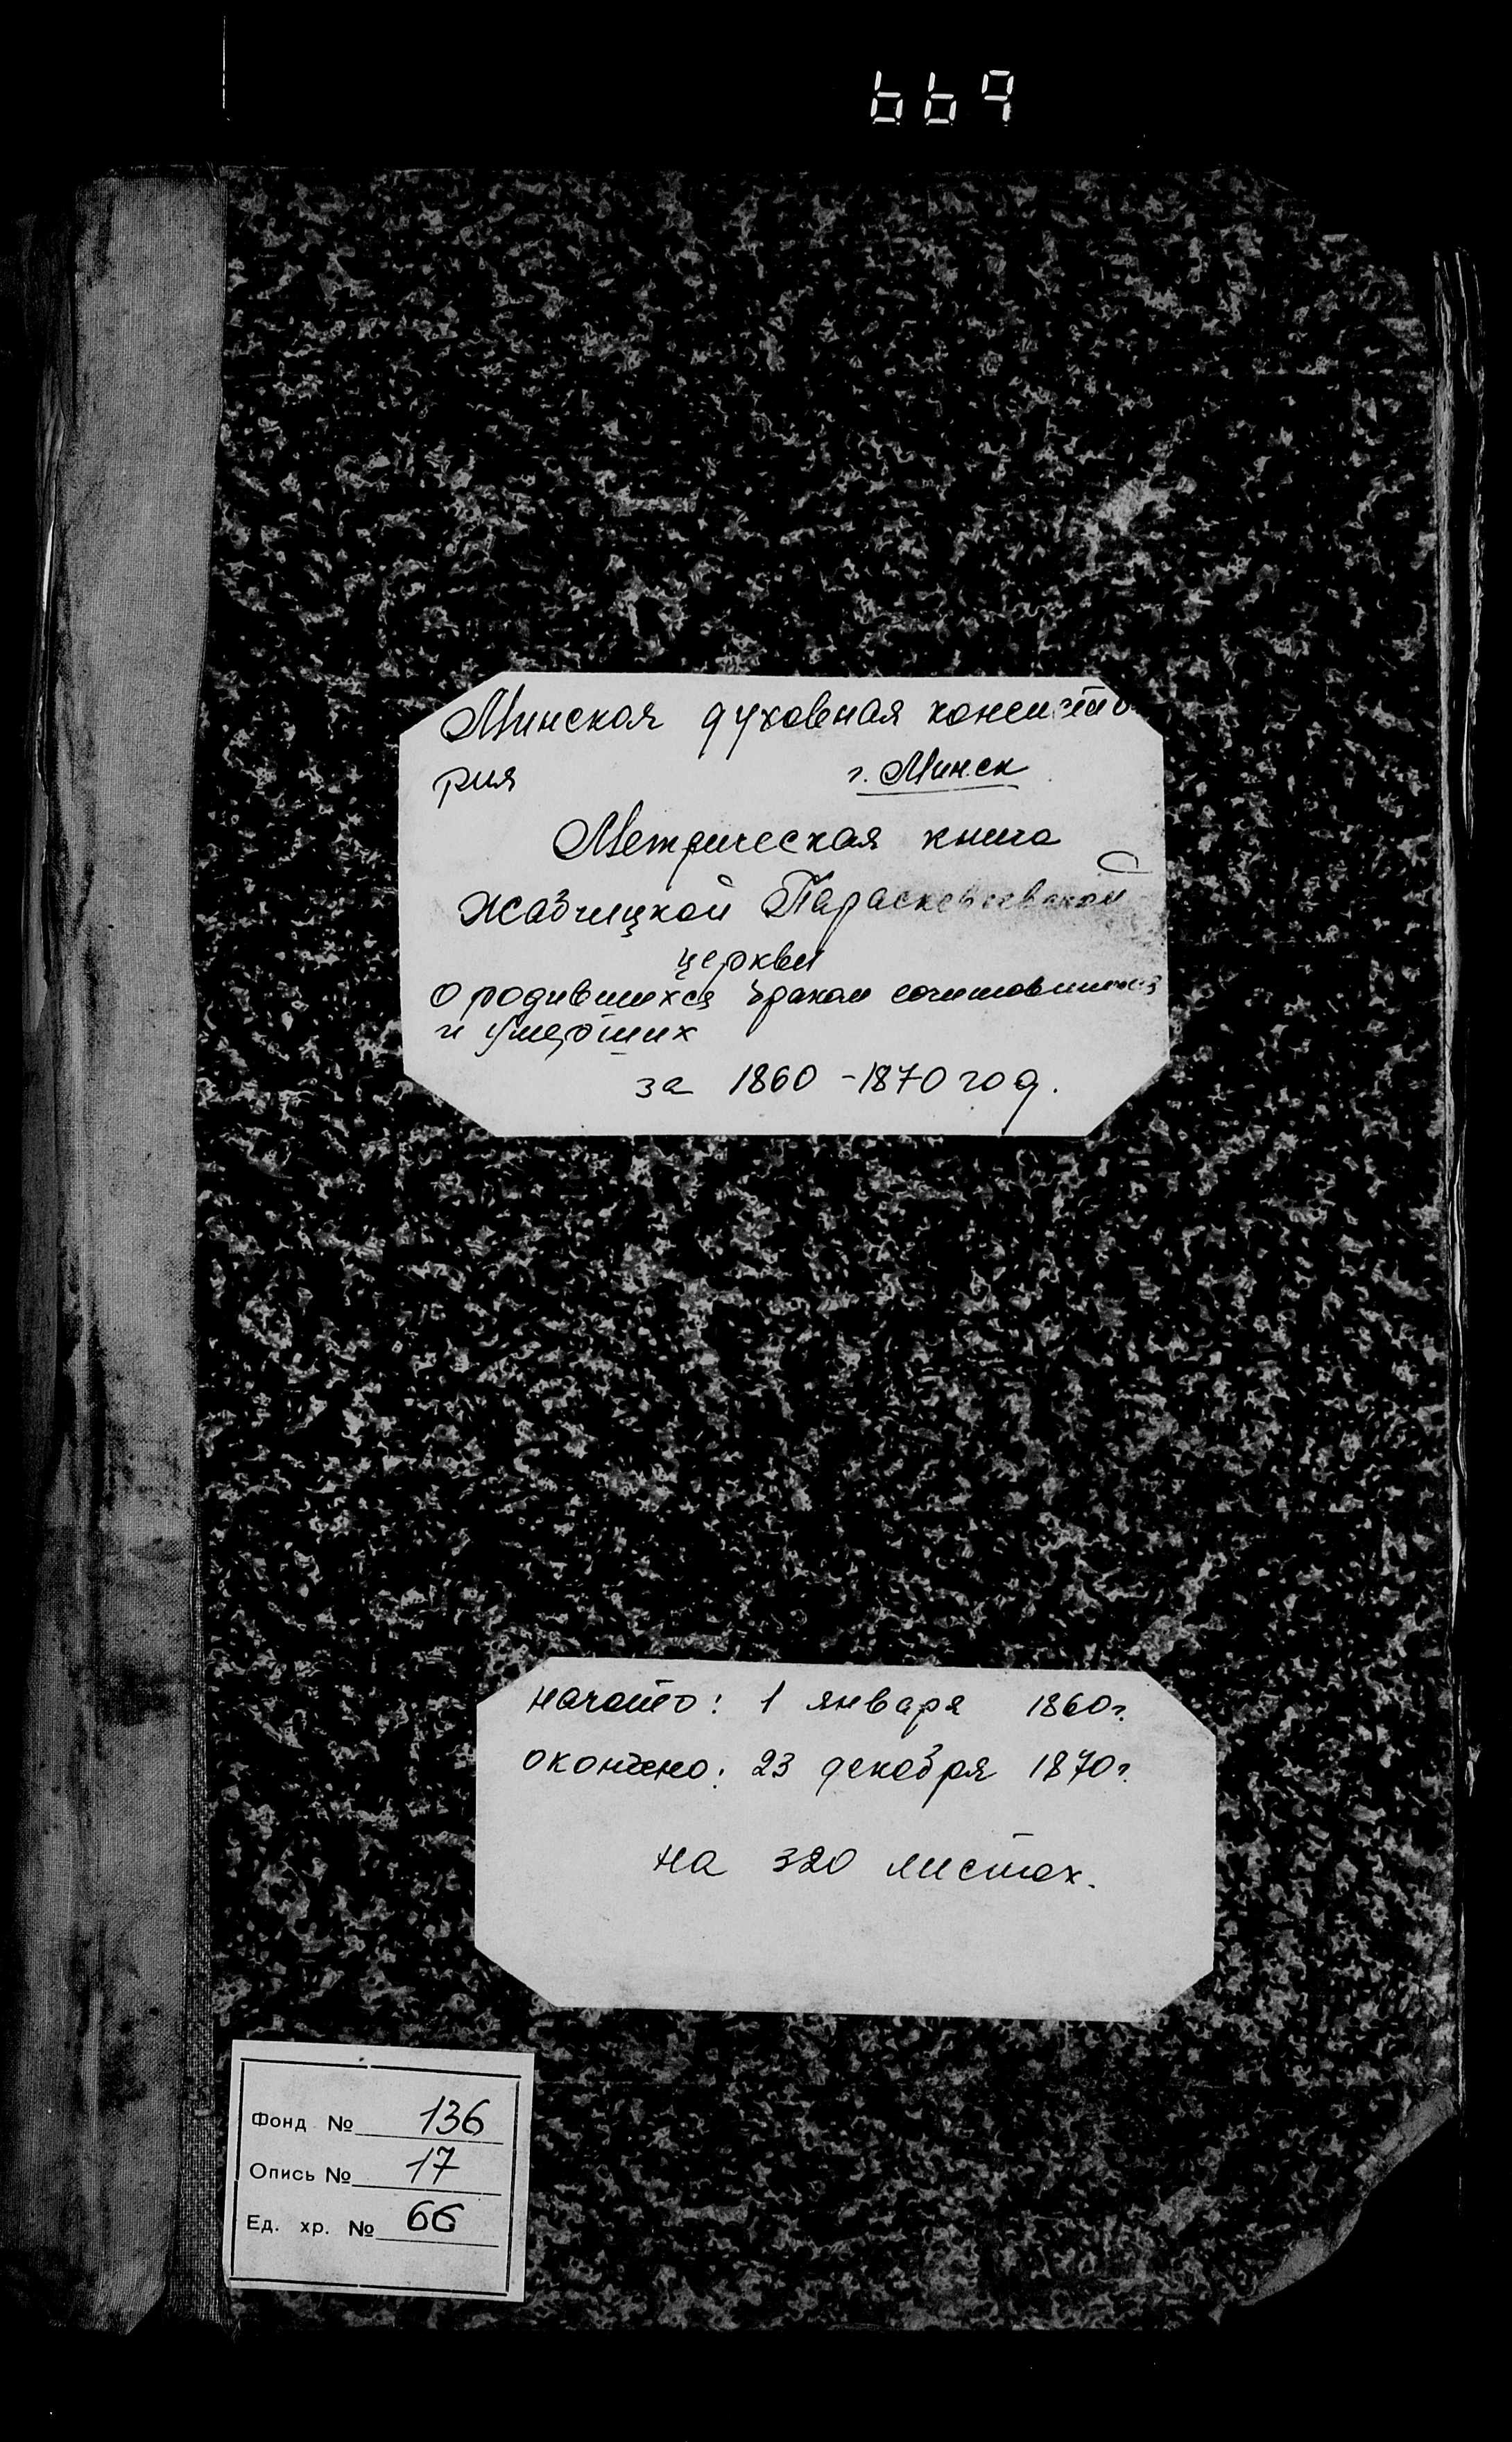 669
Минская духовная консисто
рия г. Минск
Метрическая книга
Жабчицкой Параскевиевской
церкви
о родившихся браком сочетавшихся
и умерших
за 1860 - 1870 год.
начато: 1 января 1860 г.
окончено: 23 декабря 1870 г.
на 320 листах.
Фонд № 136
Опись № 17
Ед. хр. № 66